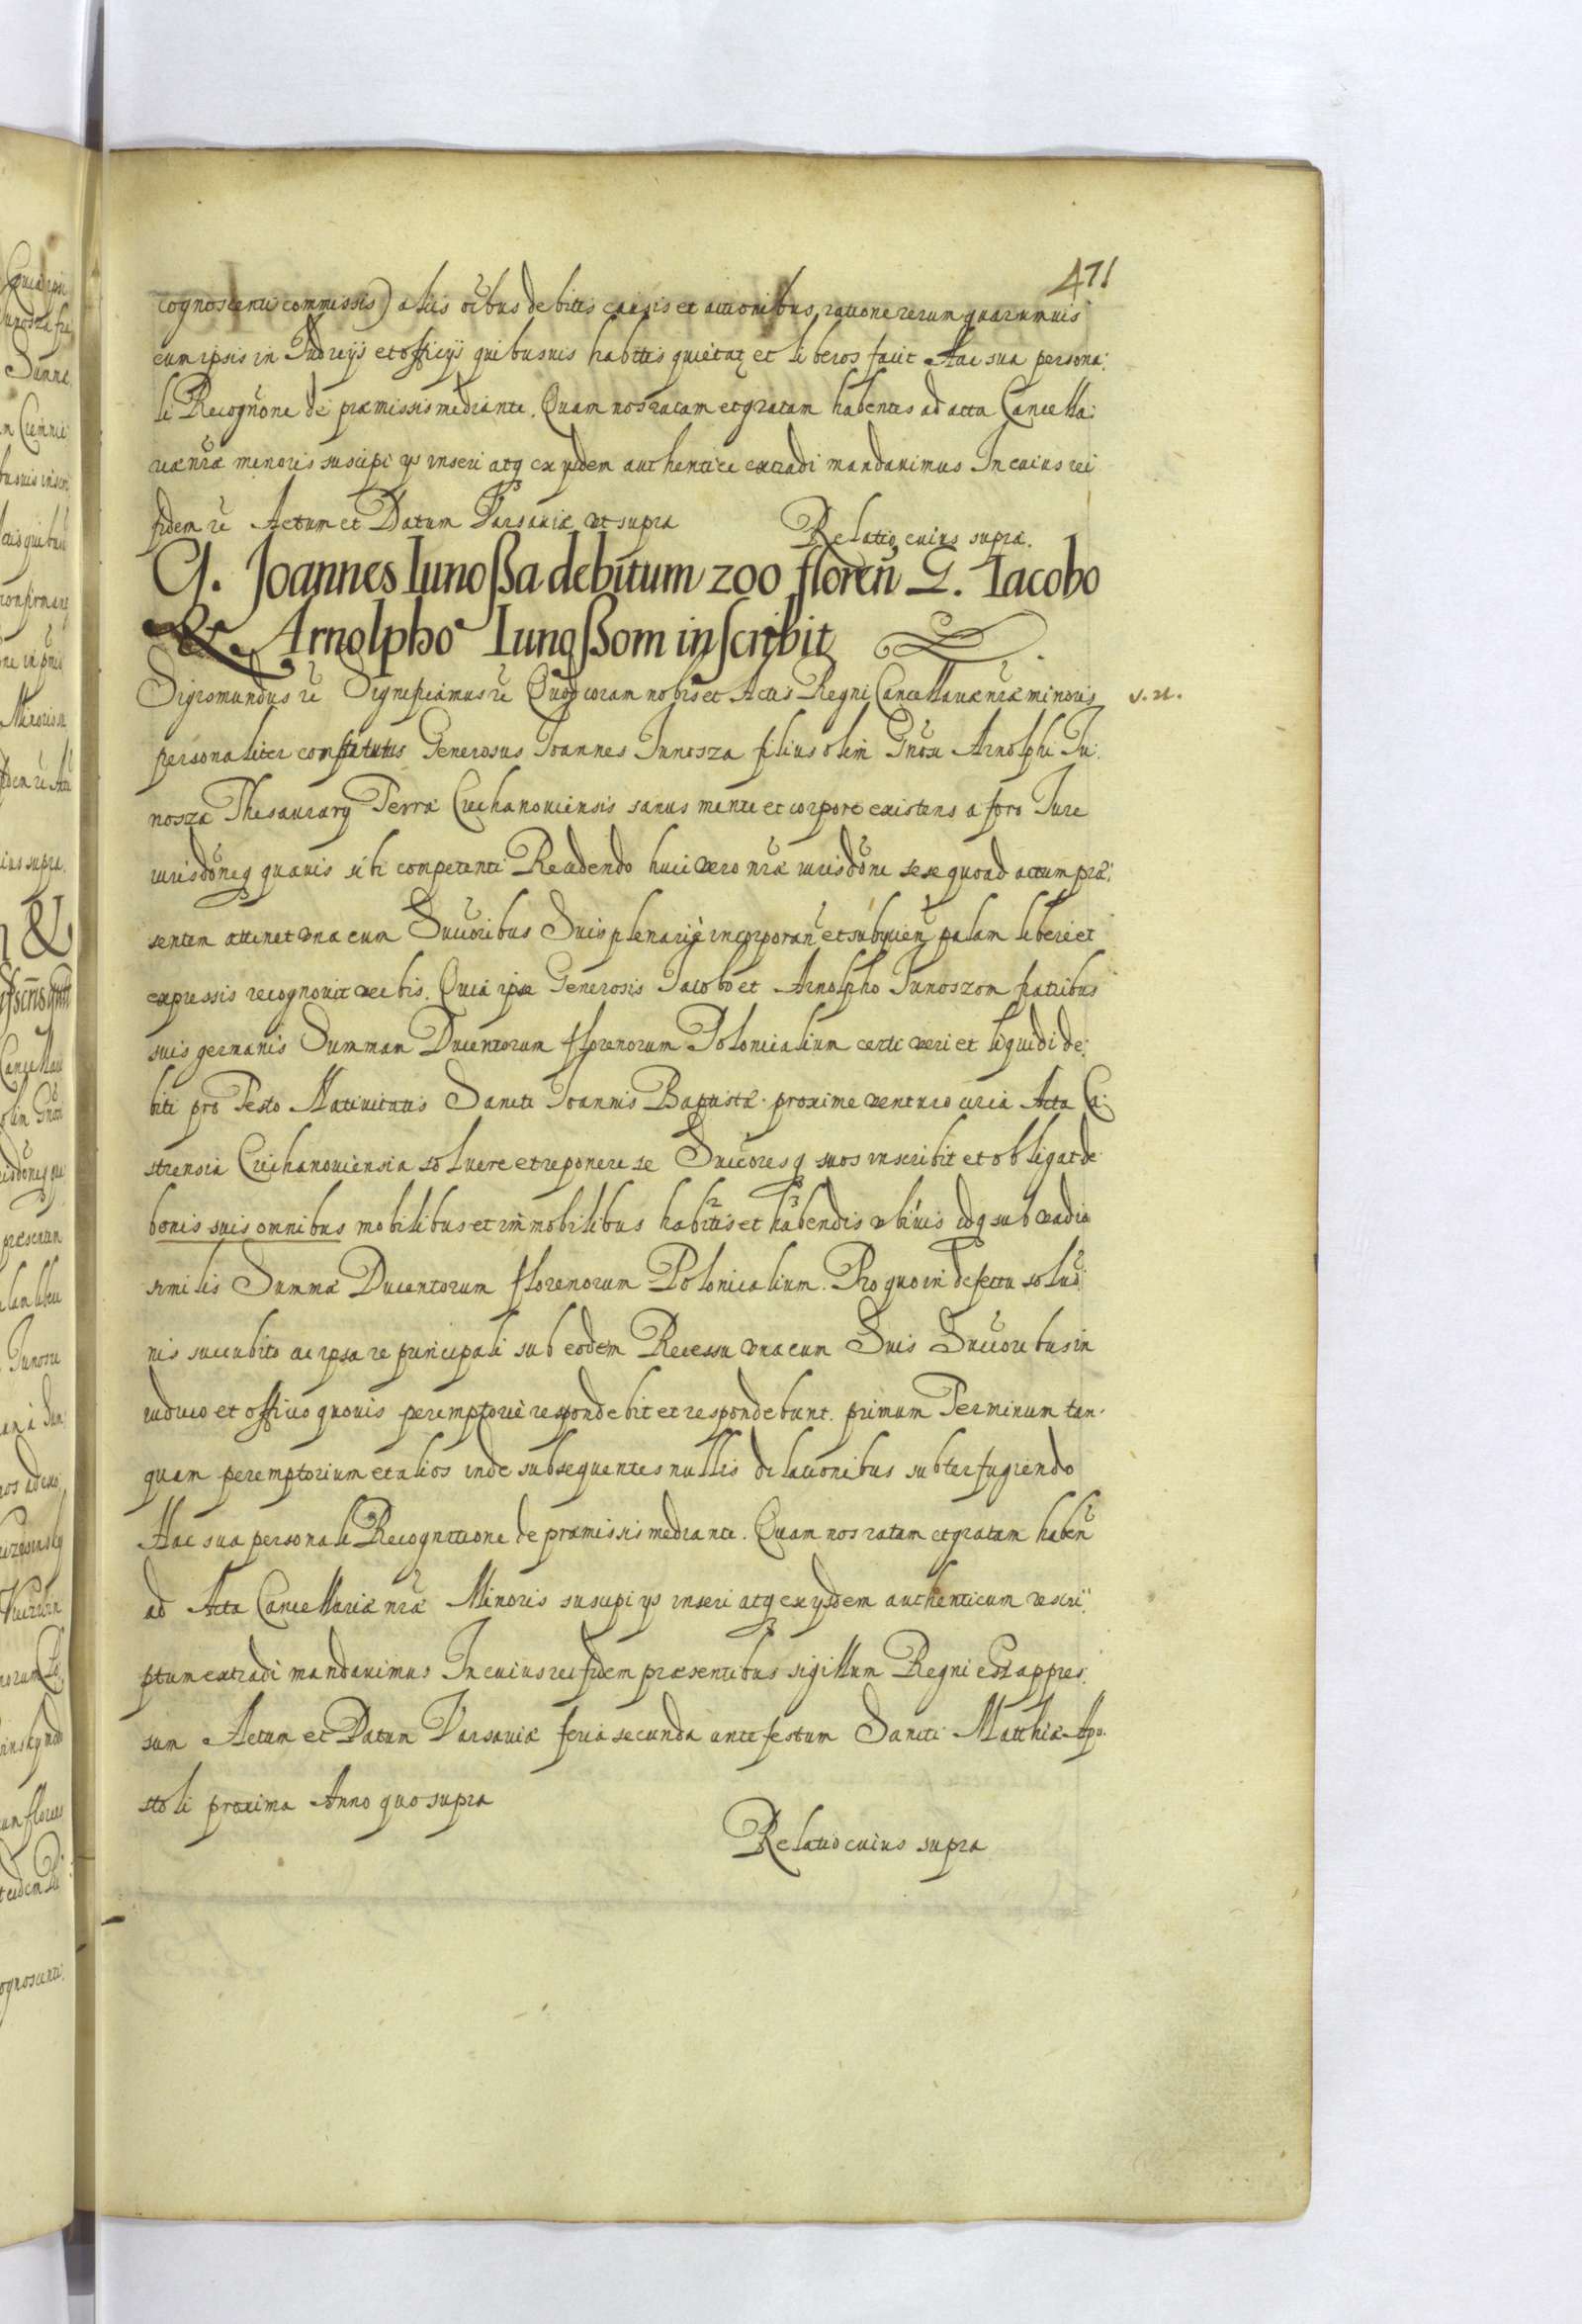 471
cognoscenti commissis) aliis oĩbus debitis causis et actionibus, ratione rerum quarumuis
cum ipsis in Iudicijs et officijs quibusuis habitis quietat et liberos facit Hac sua persona:
li Recognõne de præmissis mediante. Quam nos ratam et gratam habentes ad acta Cancella:
riæ nræ minoris suscipi ijs inseri atq ex ijsdem authentice extradi mandauimus In cuius rei
fidem &c Actum et Datum Varsauiæ ut supra Relatio cuius supra.
G. Joannes Iunoßa debitum 200 floreñ G. Iacobo
& Arnolpho Iunoßom inscribit
Sigismundus &c Significamus &c Quod coram nobis et Actis Regni Cancellariæ nræ minoris s. n.
personaliter constitutus Generosus Joannes Junosza filius olim Gnõsi Arnolphi Ju:
nosza Thesaurarij Terræ Ciechanouiensis sanus mente et corpore existens a foro Iure
iurisdõneq quauis sibi competenti Recedendo huic vero nræ iurisdõni sese quoad actum præ:
sentem attinet una cum Succõribus Suis plenarie incorporañ et subijcieñ palam libere et
expressis recognouit verbis. Quia ipse Generosis Jacobo et Arnolpho Junoszom fratribus
suis germanis Summam Ducentorum florenorum Polonicalium certi veri et liquidi de:
biti pro Festo Natiuitatis Sancti Joannis Baptistæ proxime venturo circa Acta Ca:
strensia Ciechanouiensia soluere et reponere se Succõresq suos inscribit et obligat de
bonis suis omnibus mobilibus et immobilibus habitis et habendis ubiuis idq sub vadio
similis Summæ Ducentorum florenorum Polonicalium. Pro quo in defectu soluõ:
nis succubito ac ipsa re principali sub eodem Recessu una cum Suis Succõribus in
iudicio et officio quouis peremptorie respondebit et respondebunt. primum Terminum tan:
quam peremptorium et alios inde subsequentes nullis dilationibus subterfugiendo
Hac sua personali Recognitione de præmissis mediante. Quam nos ratam et gratam habeñ
ad Acta Cancellariæ nræ Minoris suscipi ijs inseri atq ex ijsdem authenticum rescri:
ptum extradi mandauimus In cuius rei fidem præsentibus sigillum Regni est appres:
sum Actum et Datum Varsauiæ feria secunda ante festum Sancti Matthiæ Apo:
stoli proxima Anno quo supra
Relatio cuius supra